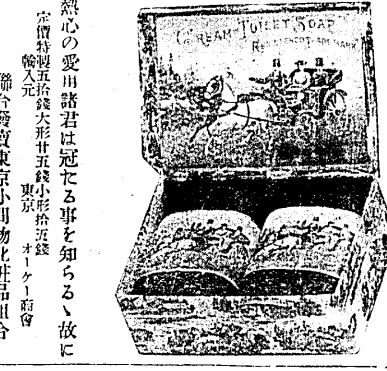 CREAM TOILET SOAP
REGISTERED TRADE MARK
熱心の愛用諸君は冠たる事を知らるゝ故に
定價特製五拾錢大形廿五錢小形拾五錢
輸入元 東京 オーケー商會
聯合發賣東京小間物化粧品組合